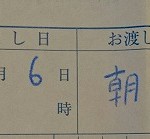 し日 お渡し
月6日 朝
時